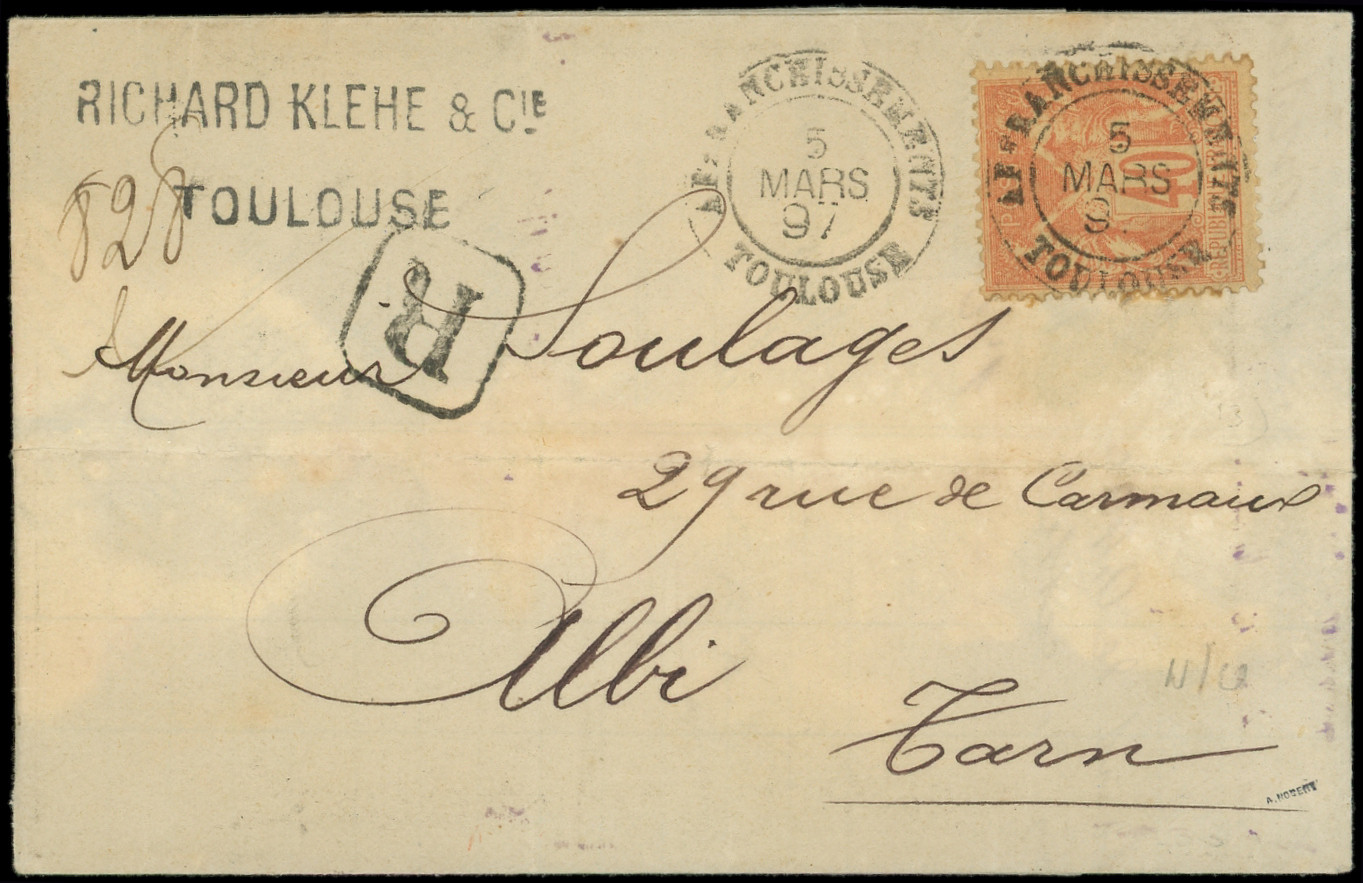 RICHARD KLEHE & CIE
TOULOUSE
828
R
AFFRANCHISSEMENTS
5
MARS
97
TOULOUSE
AFFRANCHISSEMENTS
5
MARS
9
TOULOUSE
40
REPUB
Monsieur Soulages
29 rue de Carmaux
Albi
Tarn
13